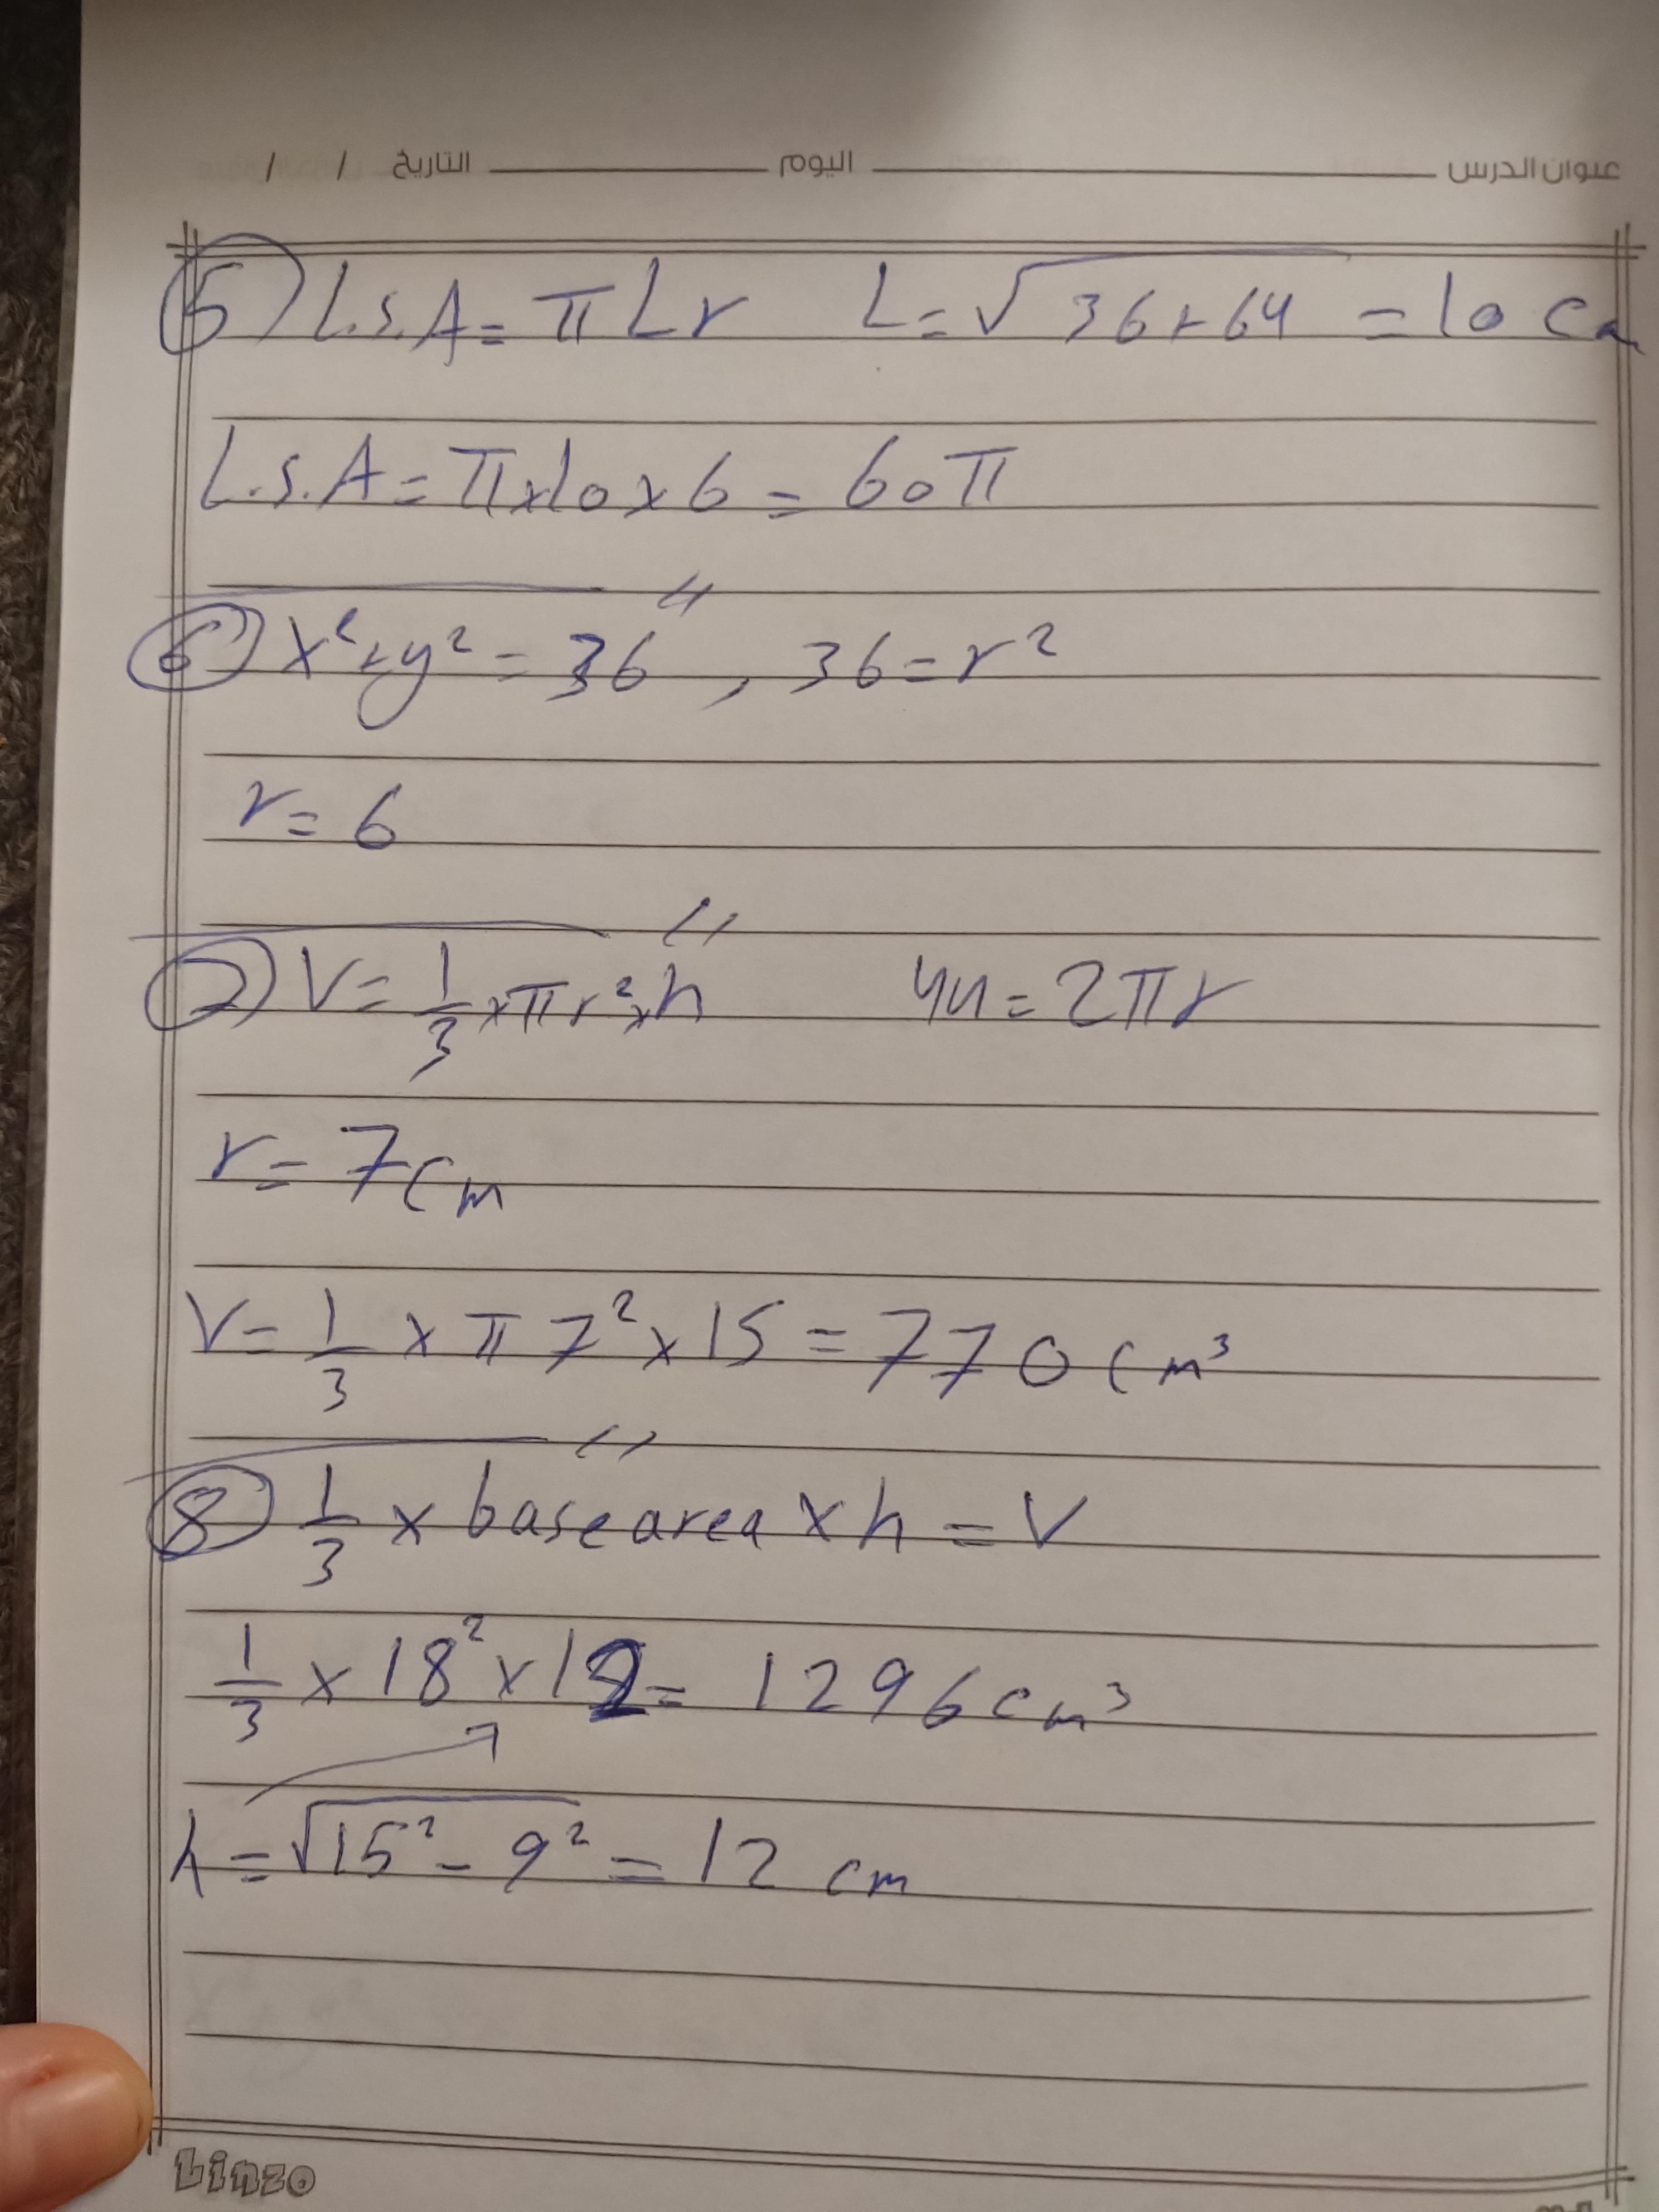 عنوان الدرس اليوم التاريخ / /
5 L.S.A = π L r L = √36+64 = 10 cm
L.S.A = π x 10 x 6 = 60 π
6 x² + y² = 36 , 36 = r²
r = 6
7 V = 1/3 x π r² x h 44 = 2 π r
r = 7 cm
V = 1/3 x π 7² x 15 = 770 cm³
8 1/3 x base area x h = V
1/3 x 18² x 12 = 1296 cm³
h = √15² - 9² = 12 cm
Linzo